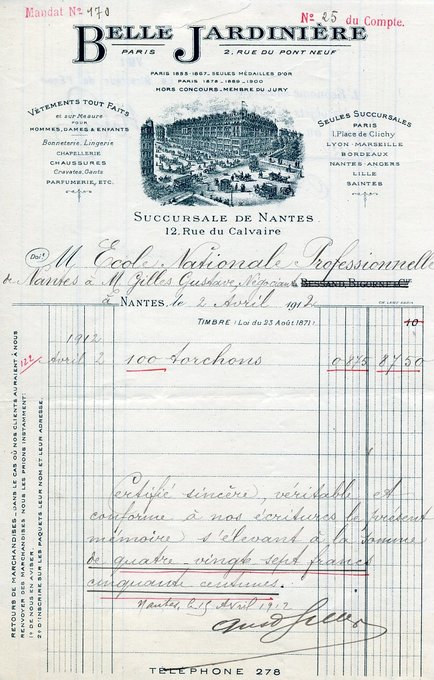 Mandat No 170
No 25 du Compte.
BELLE JARDINIÈRE
PARIS 2, RUE DU PONT NEUF
PARIS 1855-1867_SEULES MÉDAILLES D'OR
PARIS 1878_1889_1900
HORS CONCOURS_MEMBRE DU JURY
VÊTEMENTS TOUT FAITS
et sur Mesure
POUR
HOMMES, DAMES & ENFANTS
Bonneterie, Lingerie
CHAPELLERIE
CHAUSSURES
Cravates, Gants
PARFUMERIE, ETC.
SEULES SUCCURSALES
PARIS
1, Place de Clichy
LYON-MARSEILLE
BORDEAUX
NANTES-ANGERS
LILLE
SAINTES
SUCCURSALE DE NANTES
12, Rue du Calvaire
Doit M Ecole Nationale Professionnelle
de Nantes à M Gilles Gustave, Négociant
à NANTES, le 2 Avril 1912
TIMBRE (Loi du 23 Août 1871) 10
1912
122 Avril 2 100 torchons 0.875 87 50
Certifié sincère, véritable et
conforme à nos écritures le présent
mémoire s'élevant à la somme
de quatre-vingt-sept francs
cinquante centimes.
Nantes, le 15 Avril 1912
Gust Gilles
RETOURS DE MARCHANDISES_DANS LE CAS OÙ NOS CLIENTS AURAIENT À NOUS
RENVOYER DES MARCHANDISES NOUS LES PRIONS INSTAMMENT:
1º DE NOUS EN AVISER.
2º D'INSCRIRE SUR LES PAQUETS LEUR NOM ET LEUR ADRESSE.
TÉLÉPHONE 278